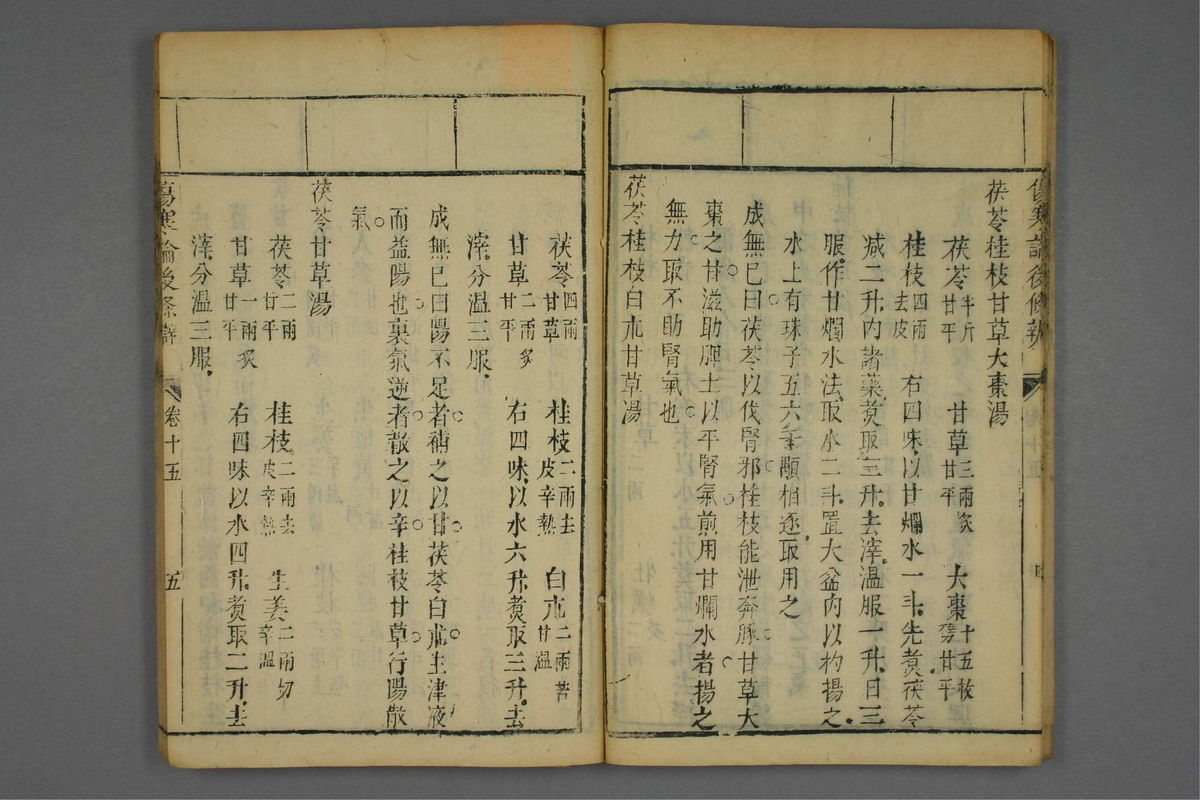 傷寒論後條辨
茯苓桂枝甘草大棗湯
茯苓半斤甘平　甘草三兩炙甘平　大棗十五枚擘甘平
桂枝四兩去皮　右四味以甘爛水一斗先煮茯苓
減二升內諸藥煮取三升去滓溫服一升日三
服作甘爛水法取水二斗置大盆內以杓揚之
水上有珠子五六千顆相逐取用之
成無已曰茯苓以伐腎邪桂枝能泄奔豚甘草大
棗之甘滋助脾土以平腎氣煎用甘爛水者揚之
無力取不助腎氣也
茯苓桂枝白朮甘草湯
茯苓四兩甘草　桂枝二兩去皮辛熱　白朮二兩苦甘溫
甘草二兩炙甘平　右四味以水六升煮取三升去
滓分溫三服
成無已曰陽不足者補之以甘茯苓白朮主津液
而益陽也裏氣逆者散之以辛桂枝甘草行陽散
氣
茯苓甘草湯
茯苓二兩甘平　桂枝二兩去皮辛熱　生姜二兩切辛溫
甘草一兩炙甘平　右四味以水四升煮取二升去
滓分溫三服
傷寒論後條辨　卷十五　五